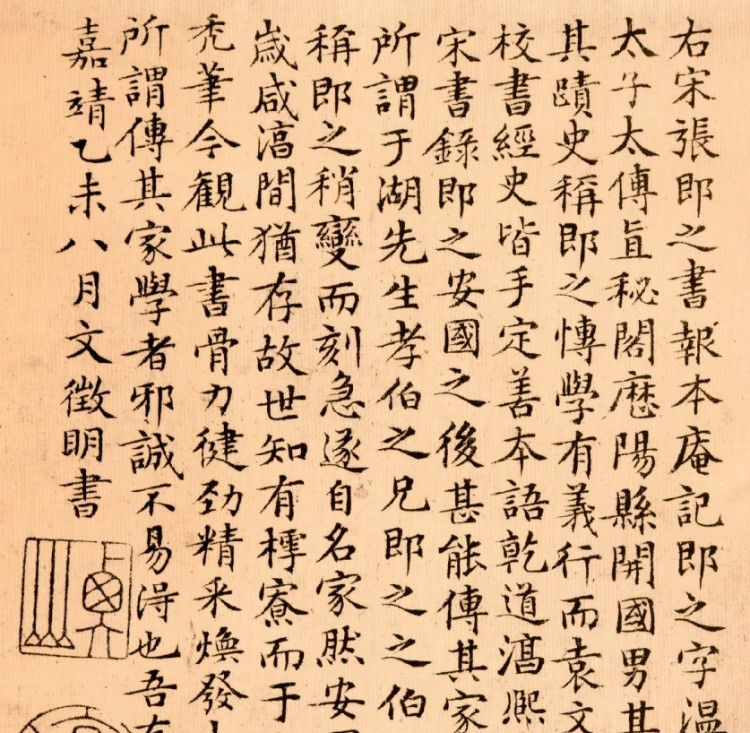 右宋張即之書報本庵記即之字溫
太子太傅直秘閣歷陽縣開國男其
其蹟史稱即之博學有義行而袁文
校書經史皆手定善本語乾道淳熙
宋書錄即之安國之後甚能傳其家
所謂于湖先生孝伯之兄即之之伯
稱即之稍變而刻急遂自名家然安
歲咸淳間猶存故世知有樗寮而于
禿筆今觀此書骨力健勁精采煥發
所謂傳其家學者邪誠不易得也吾
嘉靖乙未八月文徵明書